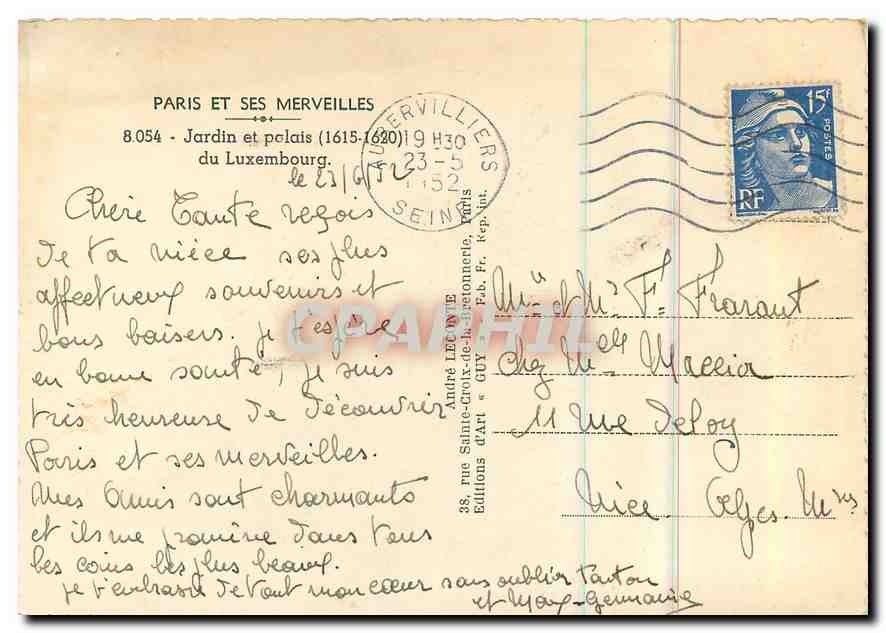 PARIS ET SES MERVEILLES
8.054 - Jardin et palais (1615-1620)
du Luxembourg.
AUBERVILLIERS
19 H30
23 - 5
1952
SEINE
15F
POSTES
RF
le 23/6/52
Chère Tante reçois
de ta nièce ses plus
affectueux souvenirs et
bons baisers. je t'espère
en bonne santé, je suis
très heureuse de découvrir
Paris et ses merveilles.
Mes Amis sont charmants
et ils me promène dans tous
les coins les plus beaux
je t'embrasse de tout mon cœur sans oublier Tonton
et
André LECONTE
38, rue Sainte-Croix-de-la-Bretonnerie, Paris
Editions d'Art « GUY » Fab. Fr. Rep. int.
et Mr F.
chez Melle Maccia
11 rue Deloy
Nice. Alpes. Mmes
CPAPHIL